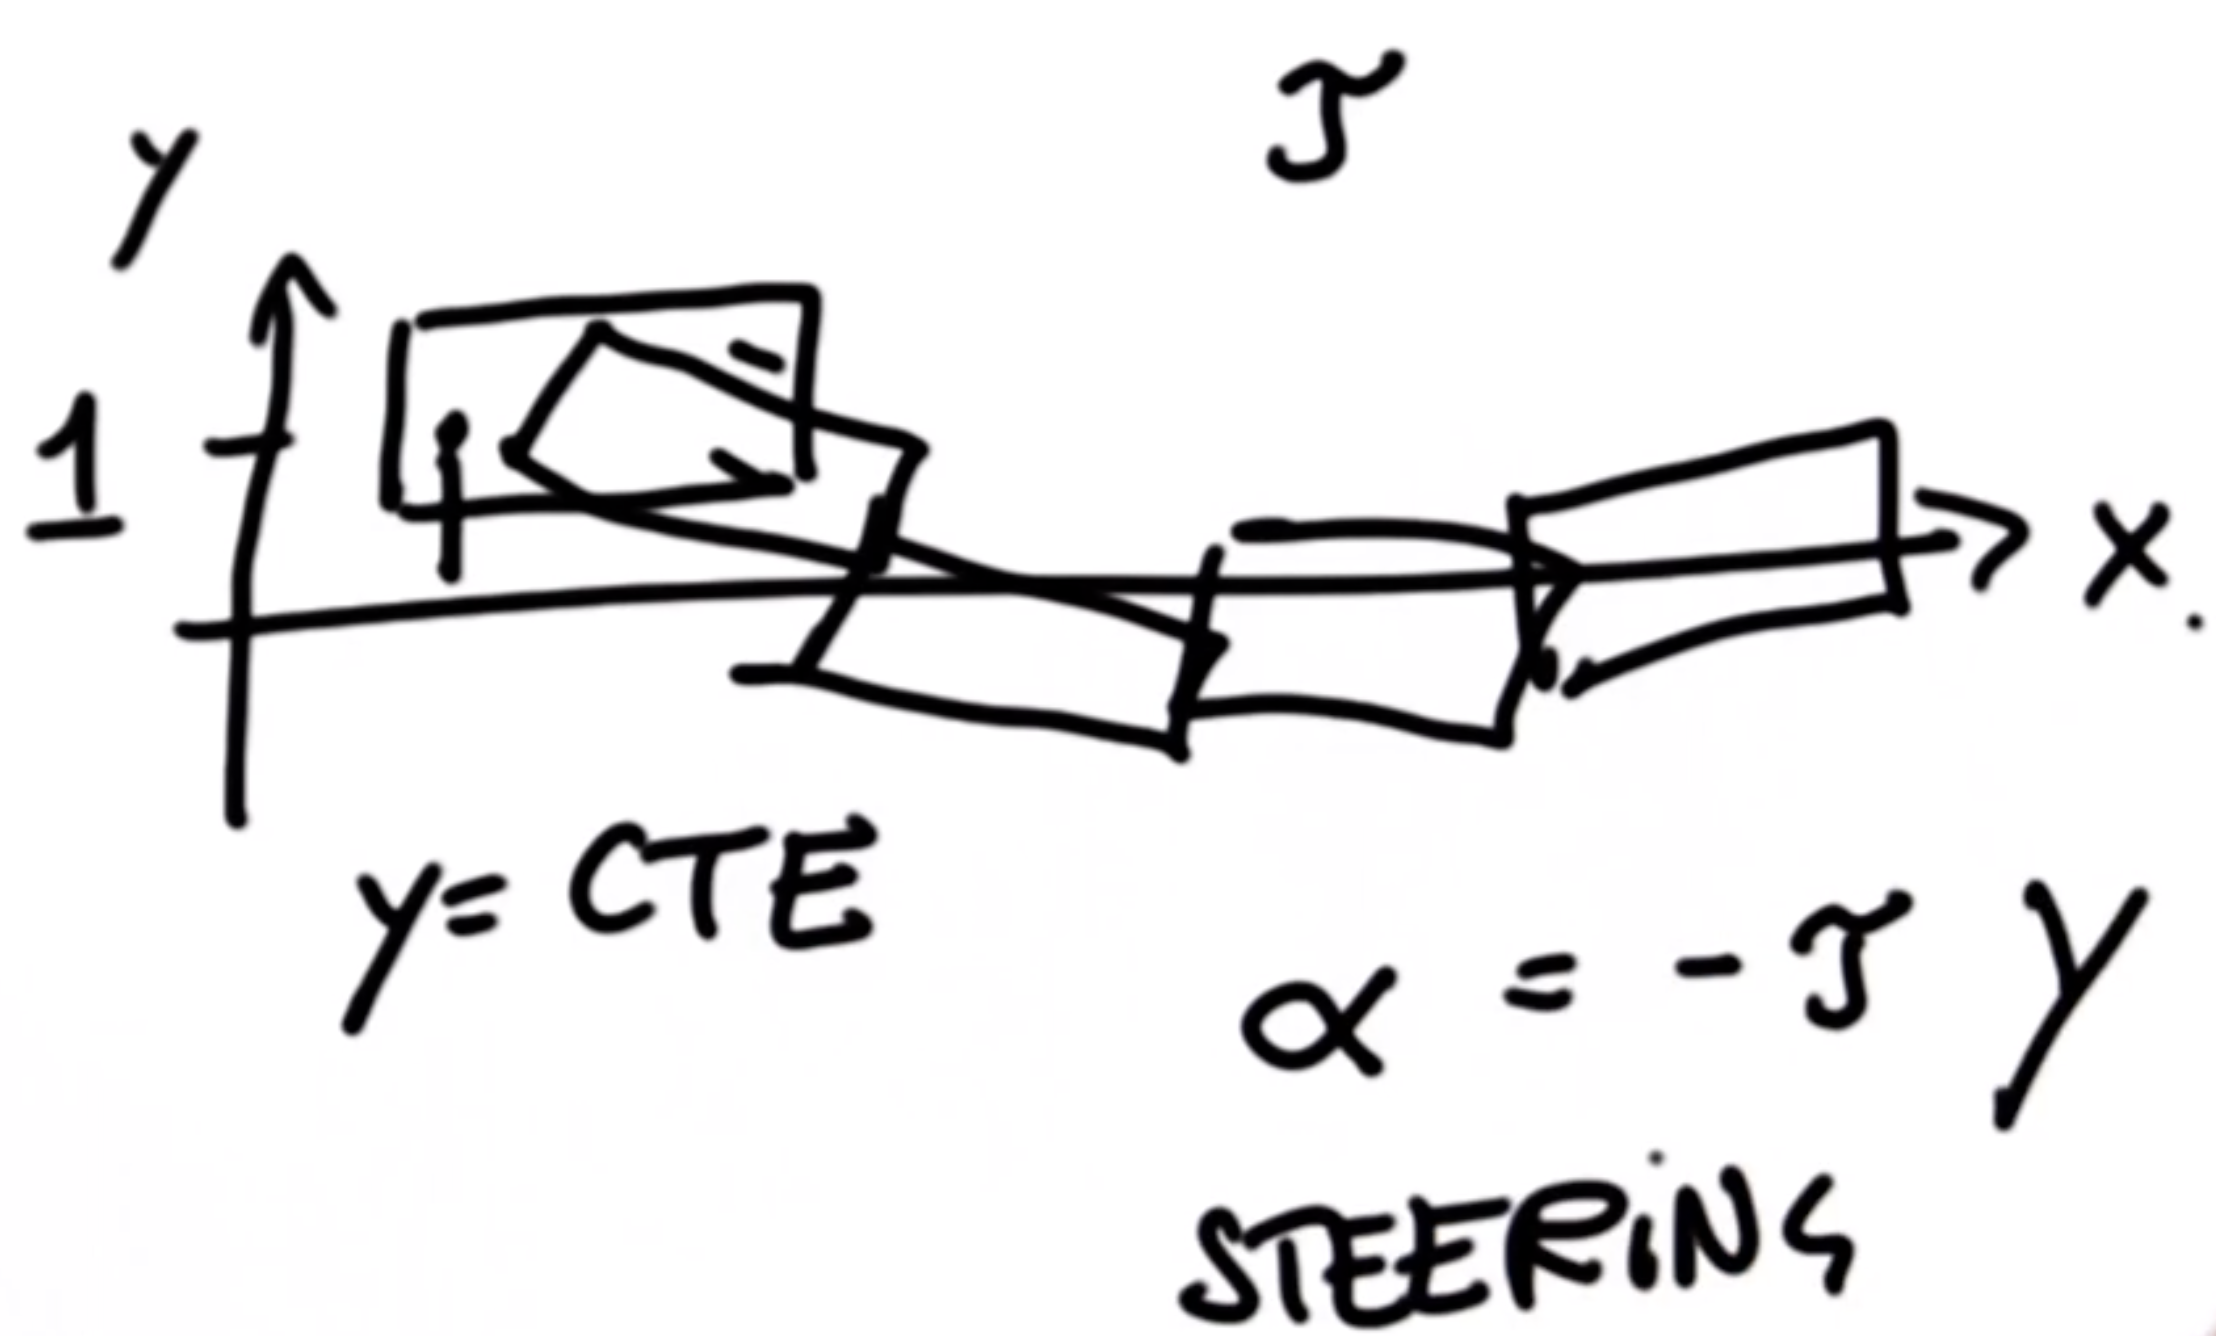 τ
y
1
x
y = CTE
α = - τ y
STEERING